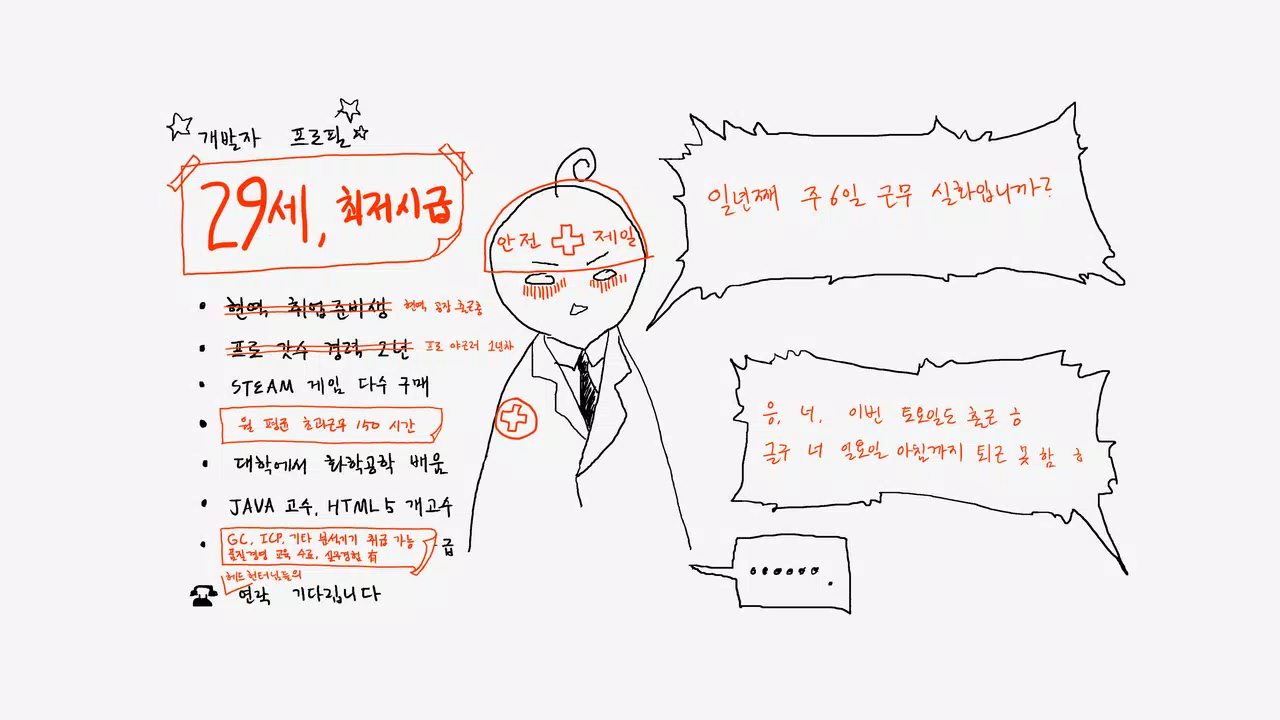 개발자 프로필
29세, 최저시급
현역 취업준비생 현역 공장 출근중
프로 갓수 경력 2년 프로 야근러 1년차
STEAM 게임 다수 구매
월 평균 초과근무 150 시간
대학에서 화학공학 배움
JAVA 고수, HTML5 개고수
GC, ICP, 기타 분석기기 취급 가능
품질경영 교육 수료, 실무경험 有
급
헤드헌터님들의
연락 기다립니다
안전 제일
일년째 주6일 근무 실화입니까?
응, 너, 이번 토요일도 출근 ㅎ
글구 너 일요일 아침까지 퇴근 못함 ㅎ
.......